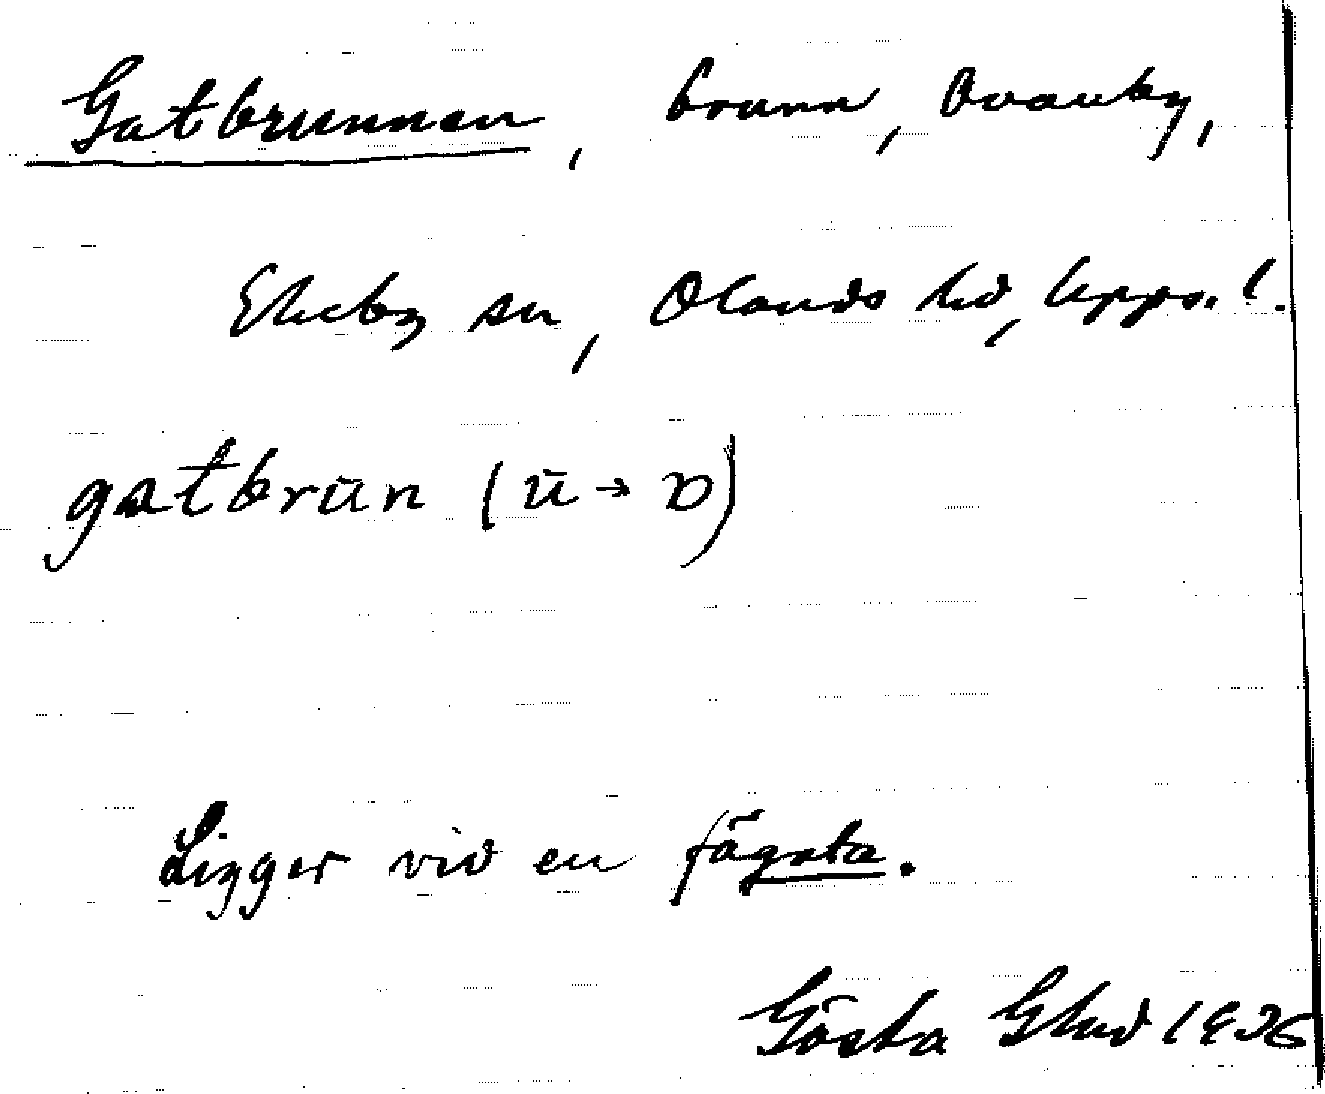 Gatbrunnen, brunn, Ovanby,
Ekeby sn, Olands hd, Upps. l.
gatbrūn (ū → ʋ)
Ligger vid en fägata.
Gösta Ekud 1936